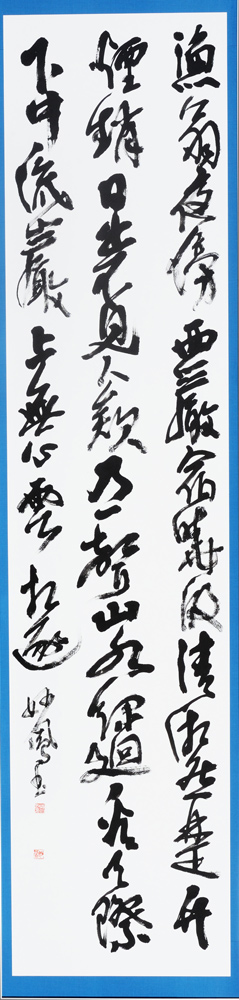 漁翁夜傍西巖宿曉汲清湘然楚竹
煙銷日出不見人欸乃一聲山水綠廻看天際
下中流巖上無心雲相逐
妙鳳書